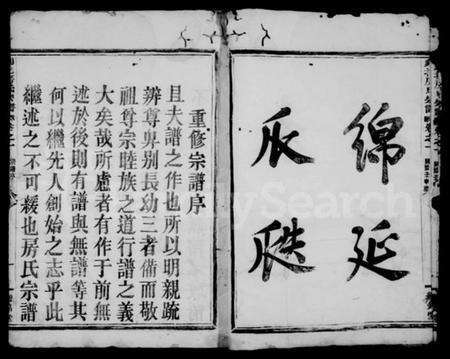 綿延
瓜瓞
重修宗譜序
且夫譜之作也所以明親疏
辨尊卑別長幼三者備而敬
祖尊宗睦族之道行譜之義
大矣哉所慮者有作于前無
述於後則有譜與無譜等其
何以繼先人創始之志乎此
繼述之不可緩也房氏宗譜